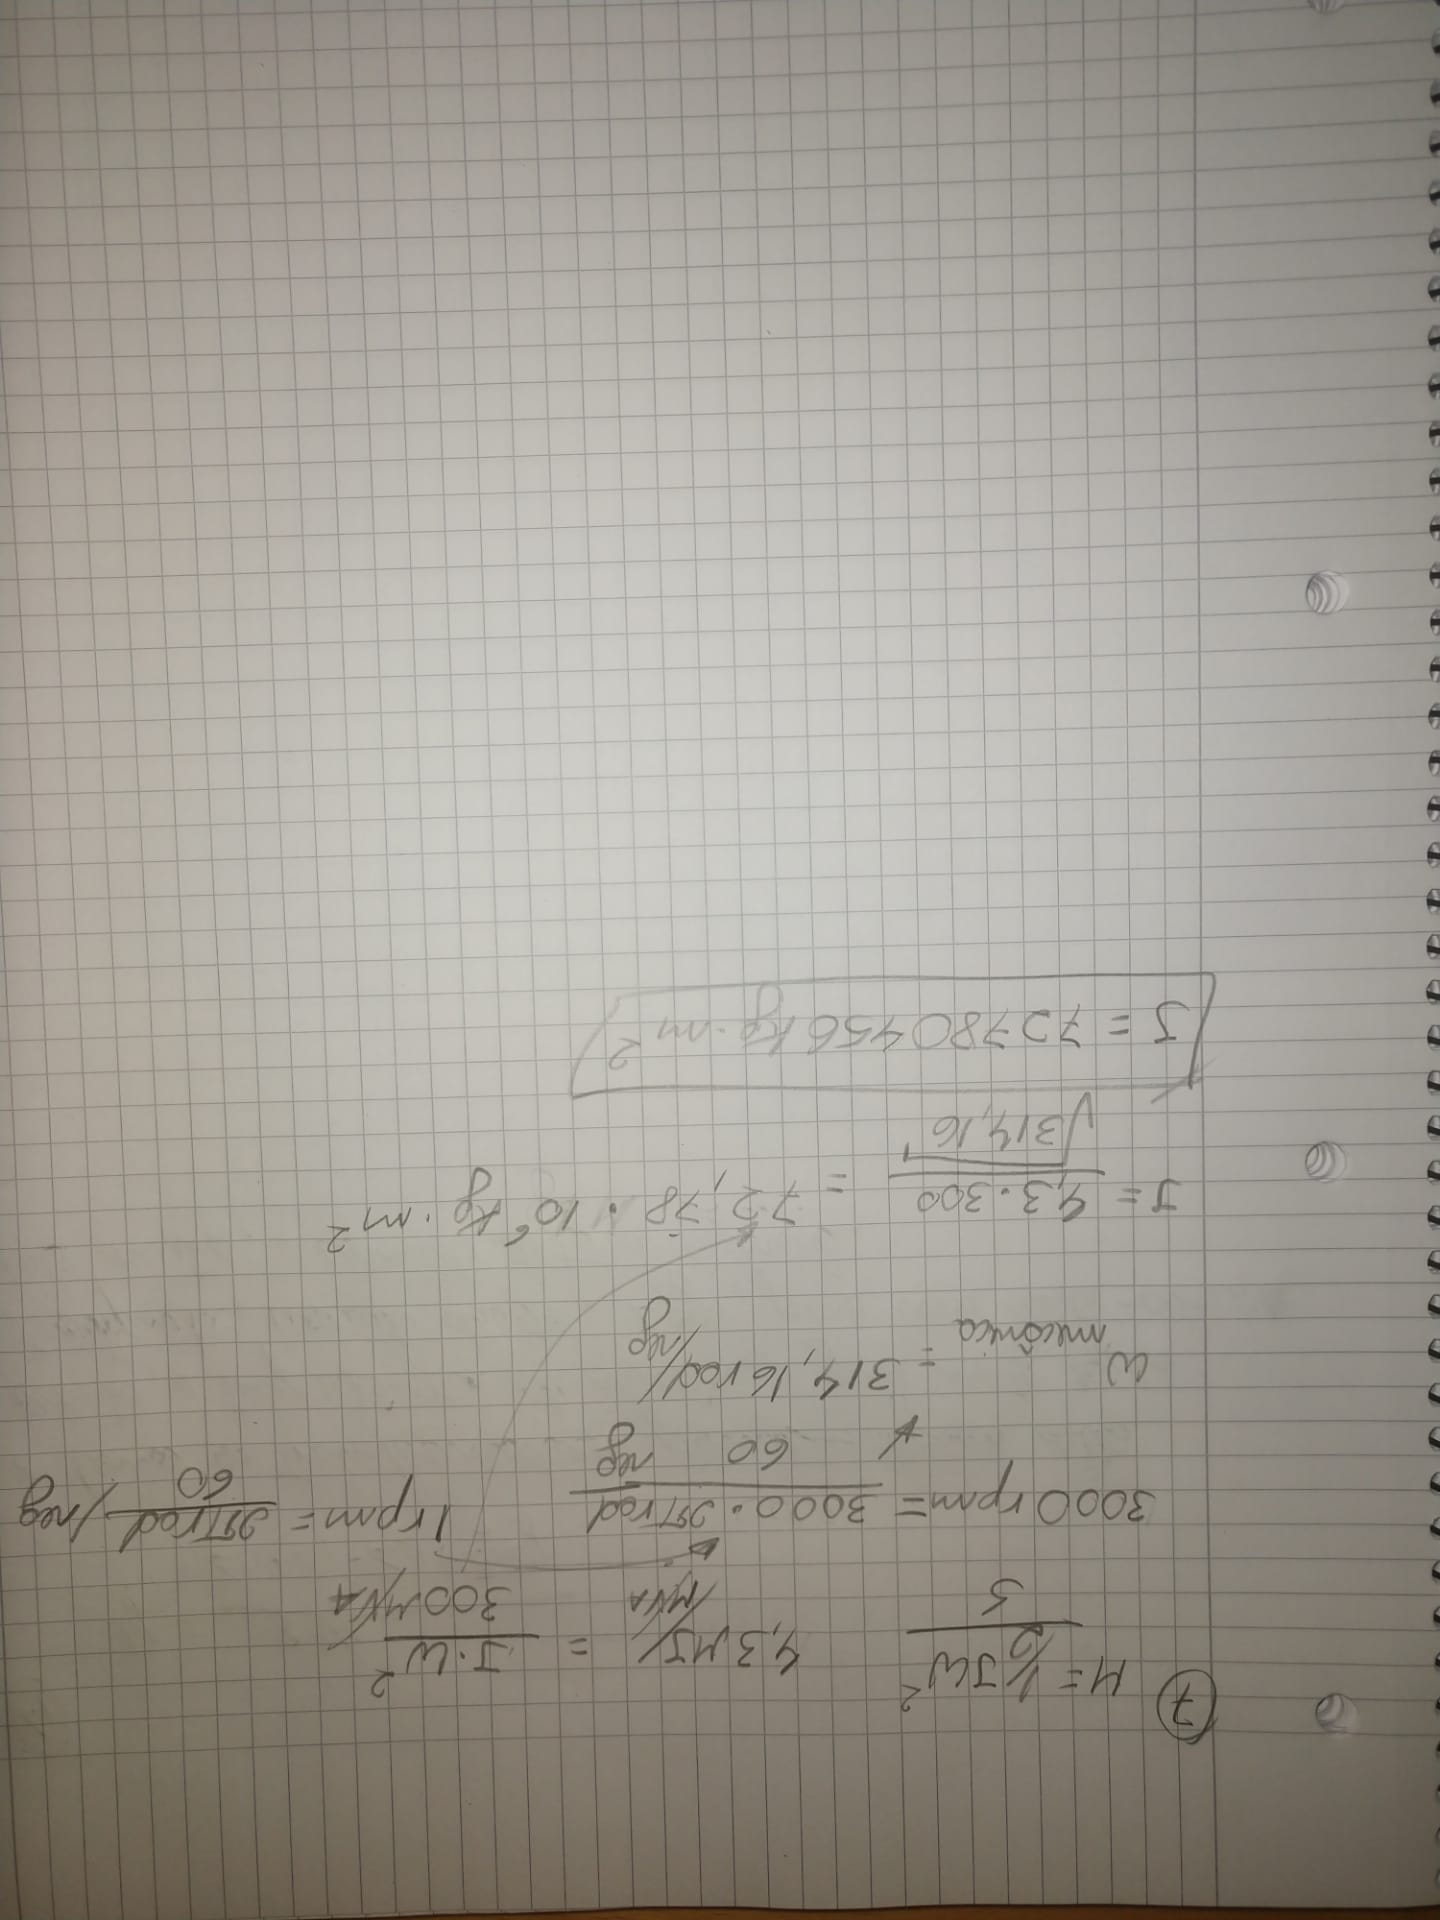 7 H = ½ Jω² / S 4,3 MJ/MVA = J·ω² / 300 MVA
3000 rpm = 3000·2π rad / 60 seg 1 rpm = 2π rad / 60 /seg
ω mecânica = 314,16 rad/seg
J = 4,3·300 / √314,16 = 72,78·10⁶ kg·m²
J = 72780456 kg·m²